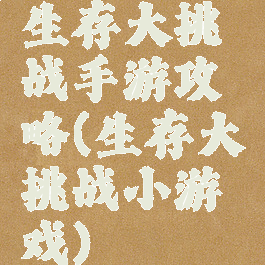 生存大挑
战手游攻
略(生存大
挑战小游
戏)